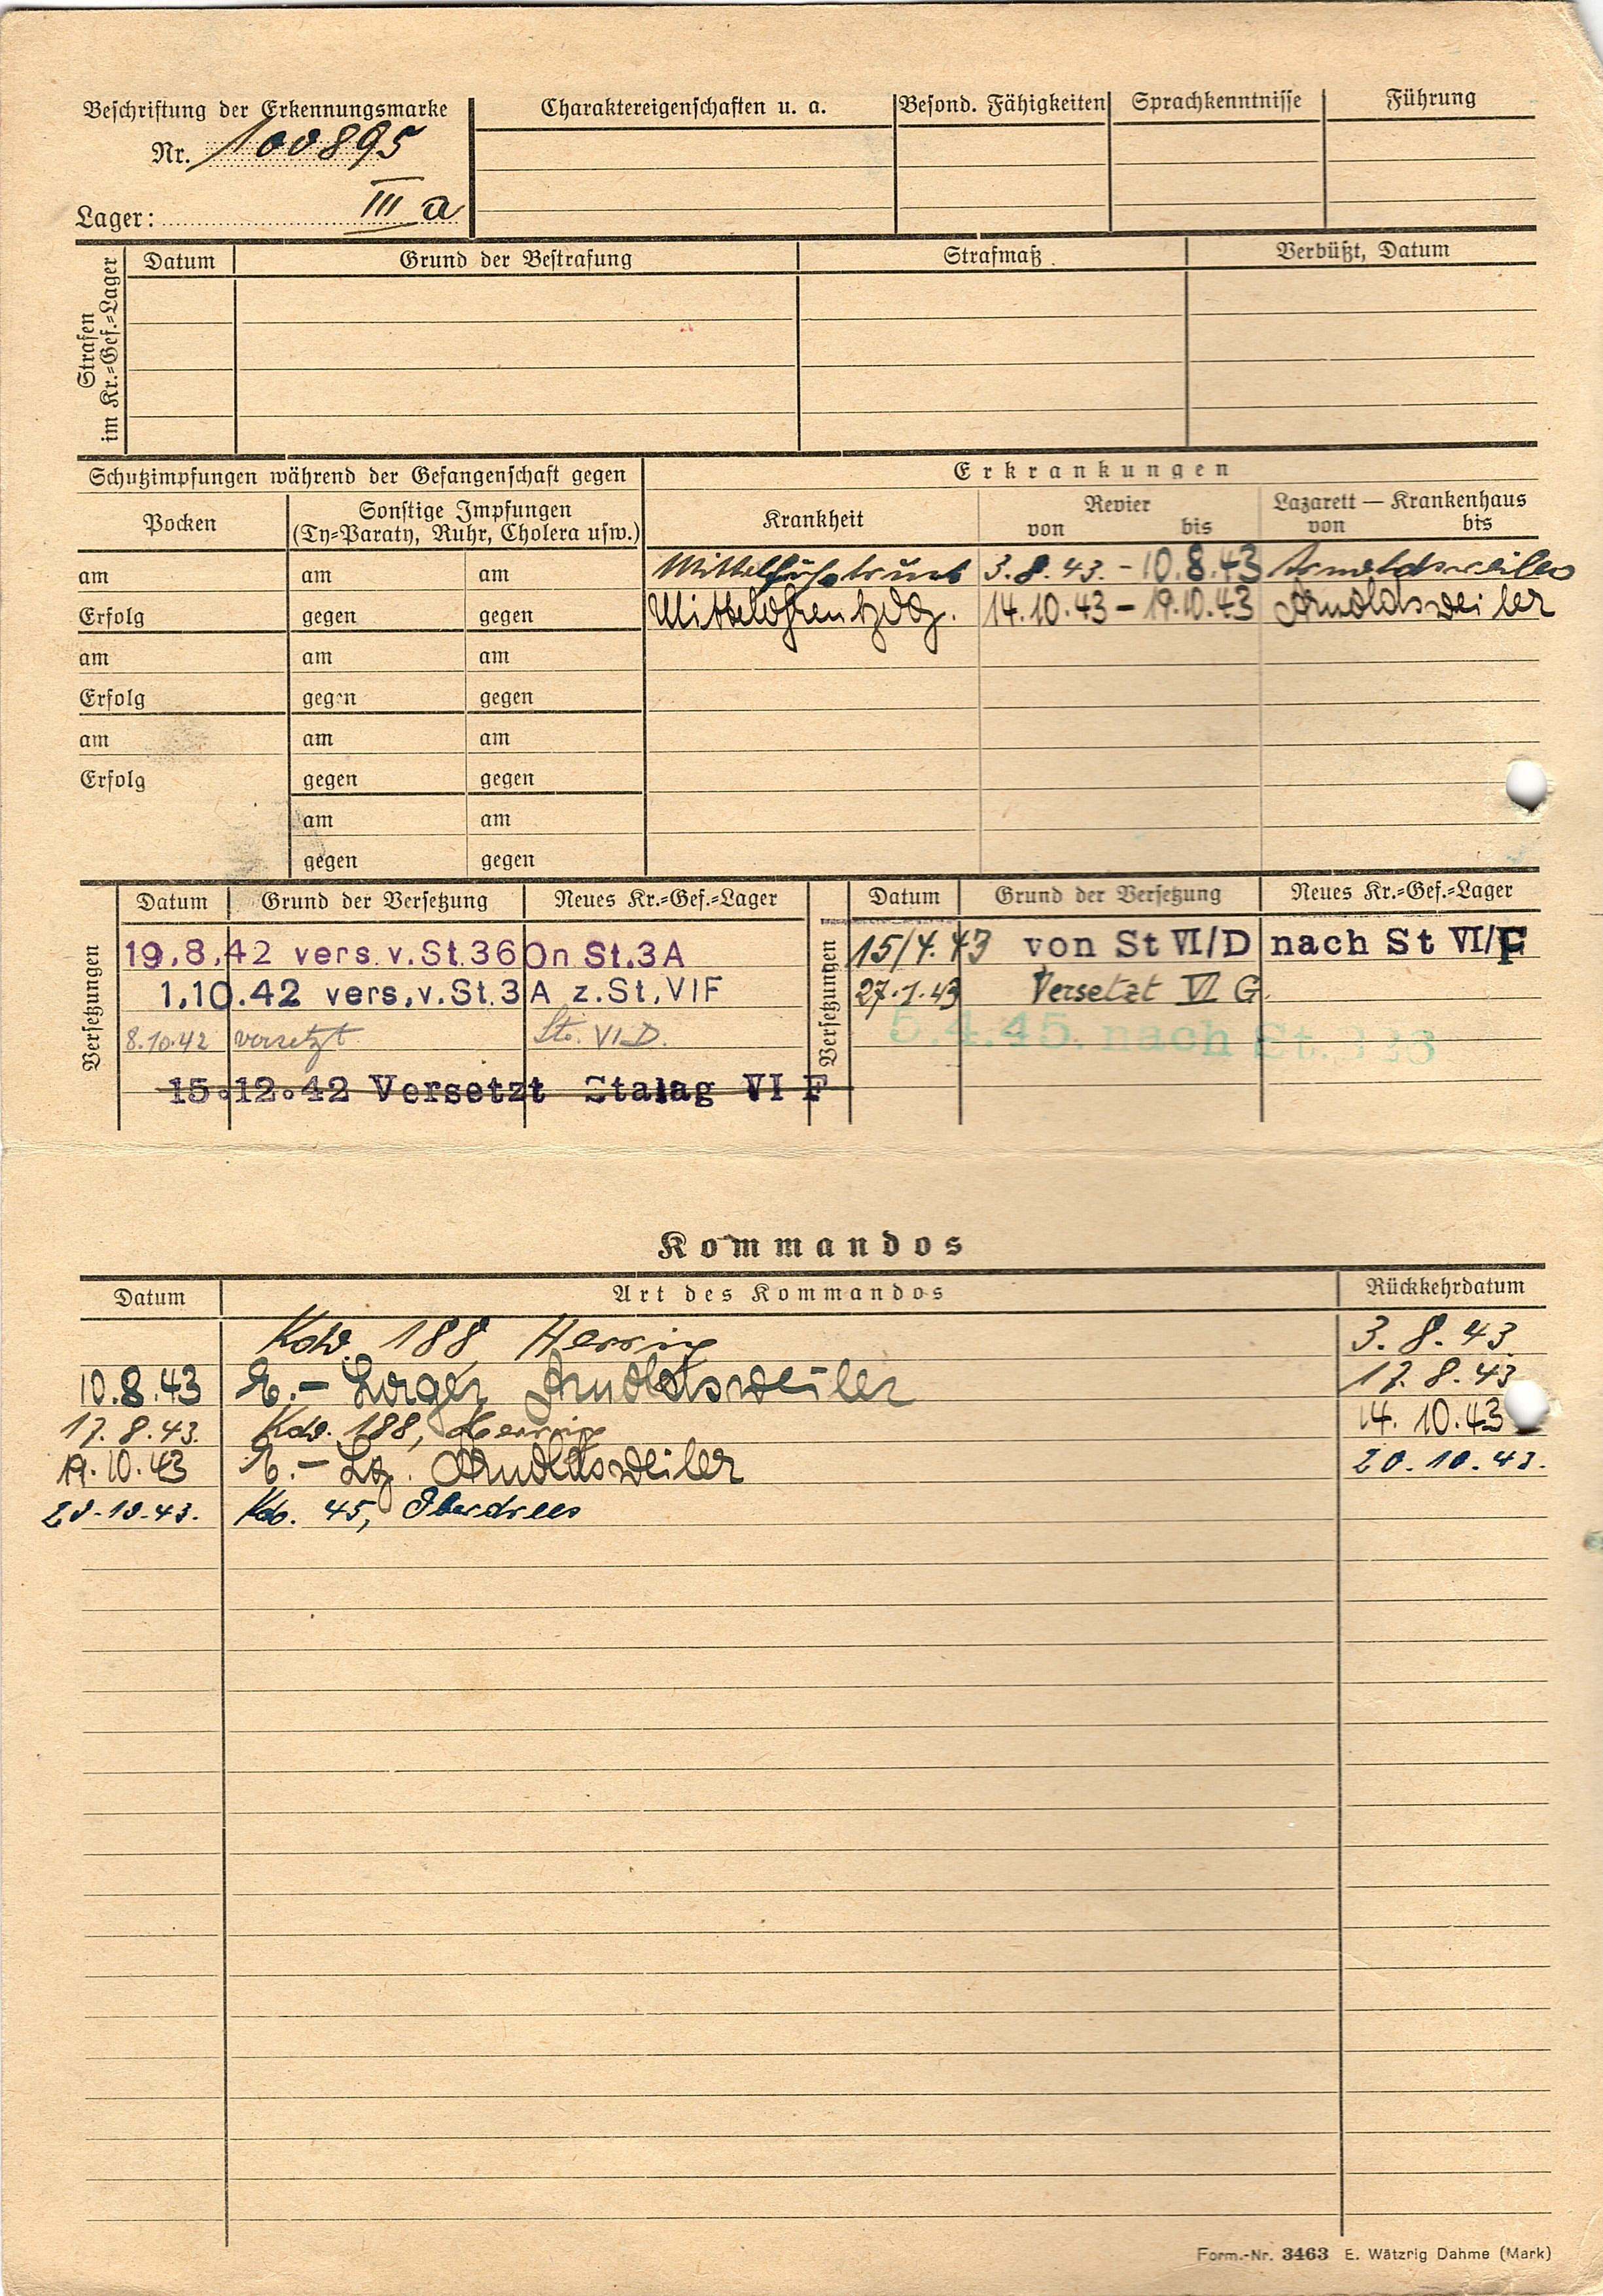 Beschriftung der Erkennungsmarke
Nr. 100895
Lager: III a
Charaktereigenschaften u. a.
Besond. Fähigkeiten
Sprachkenntnisse
Führung
Strafen im Kr.=Gef.=Lager
Datum
Grund der Bestrafung
Strafmaß
Verbüßt, Datum
Schutzimpfungen während der Gefangenschaft gegen
Erkrankungen
Pocken
Sonstige Impfungen
(Ty=Paraty, Ruhr, Cholera usw.)
Krankheit
Revier
von bis
Lazarett — Krankenhaus
von bis
am am am
3.8.43. - 10.8.43 Arnoldsweiler
Erfolg gegen gegen
14.10.43 - 19.10.43 Arnoldsweiler
am am am
Erfolg gegen gegen
am am am
Erfolg gegen gegen
am am
gegen gegen
Versetzungen
Datum Grund der Versetzung Neues Kr.=Gef.=Lager
19.8.42 vers. v. St. 360 n St. 3A
1.10.42 vers, v. St. 3A z. St, VIF
8.10.42 versetzt St. VI D.
15.12.42 Versetzt Stalag VI F
Versetzungen
Datum Grund der Versetzung Neues Kr.=Gef.=Lager
15/4.43 von St VI/D nach St VI/F
27.1.43 Versetzt VI G
5.4.45. nach St. 326
Kommandos
Datum Art des Kommandos Rückkehrdatum
Kdo. 188 3.8.43
10.8.43 E.- Lager Arnoldsweiler 17.8.43
17.8.43. Kdo. 188, 14.10.43
19.10.43 E.- Lg. Arnoldsweiler 20.10.43.
20.10.43. Kdo. 45, Oberdrees
Form.-Nr. 3463 E. Wätzrig Dahme (Mark)